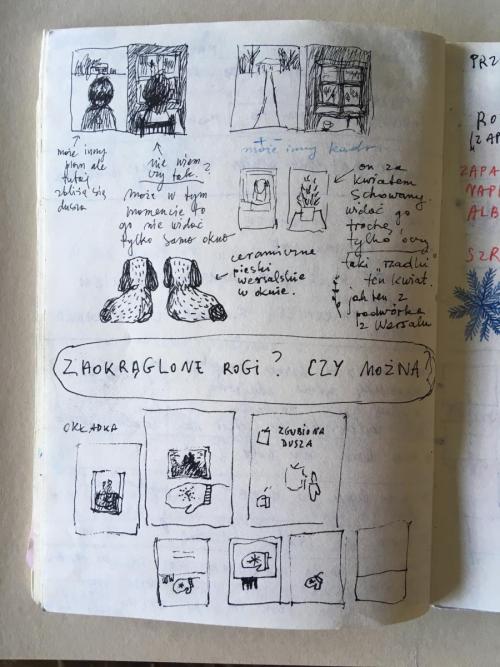 może inny
plan ale
tutaj
zbliża się
dusza
nie wiem
czy tak?
może w tym
momencie to
go nie widać
tylko samo okno
może inny kadr
on za
kwiatem
schowany.
widać go
trochę,
tylko oczy
taki rzadki
ten kwiat.
jak ten z
podwórka
z Wersalu
ceramiczne
pieski
wersalskie
w oknie.
ZAOKRĄGLONE ROGI? CZY MOŻNA?
OKŁADKA
ZGUBIONA
DUSZA
PRZ
RO
ZAPA
NAP
ALB
SZR